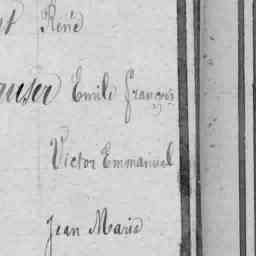 René
Emile François
Victor Emmanuel
Jean Marie